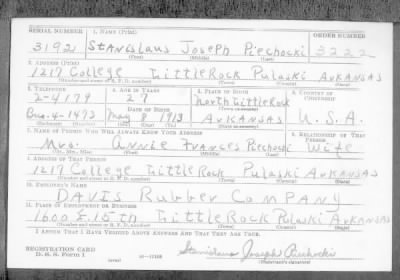 SERIAL NUMBER 1. NAME (Print) ORDER NUMBER
3192 Stanislaus Joseph Piechocki 3222
(First) (Middle) (Last)
2. ADDRESS (Print)
1217 College Little Rock Pulaski Arkansas
(Number and street or R. F. D. number) (Town) (County) (State)
3. TELEPHONE 4. AGE IN YEARS 5. PLACE OF BIRTH 6. COUNTRY OF CITIZENSHIP
2-4179 27 North Little Rock
DATE OF BIRTH (Town or county)
Bus-4-1493 May 8 1913 Arkansas U.S.A.
(Exchange) (Number) (Mo.) (Day) (Yr.) (State or country)
7. NAME OF PERSON WHO WILL ALWAYS KNOW YOUR ADDRESS 8. RELATIONSHIP OF THAT PERSON
Mrs. Annie Frances Piechocki Wife
(Mr., Mrs., Miss) (First) (Middle) (Last)
9. ADDRESS OF THAT PERSON
1217 College Little Rock Pulaski Arkansas
(Number and street or R. F. D. number) (Town) (County) (State)
10. EMPLOYER'S NAME
Davis Rubber Company
11. PLACE OF EMPLOYMENT OR BUSINESS
1600 E. 15th Little Rock Pulaski Arkansas
(Number and street or R. F. D. number) (Town) (County) (State)
I AFFIRM THAT I HAVE VERIFIED ABOVE ANSWERS AND THAT THEY ARE TRUE.
REGISTRATION CARD
D. S. S. Form 1 Stanislaus Joseph Piechocki
(Registrant's signature)